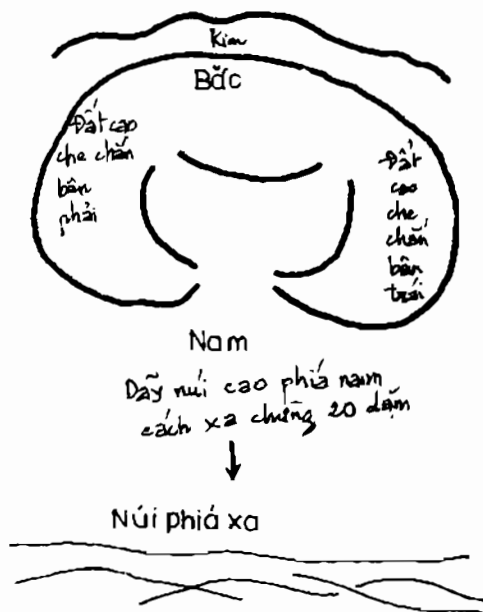 Kim
Bắc
Đất cao
che chắn
bên
phải
Đất
cao
che
chắn
bên
trái
Nam
Dãy núi cao phía nam
cách xa chừng 20 dặm
Núi phiá xa